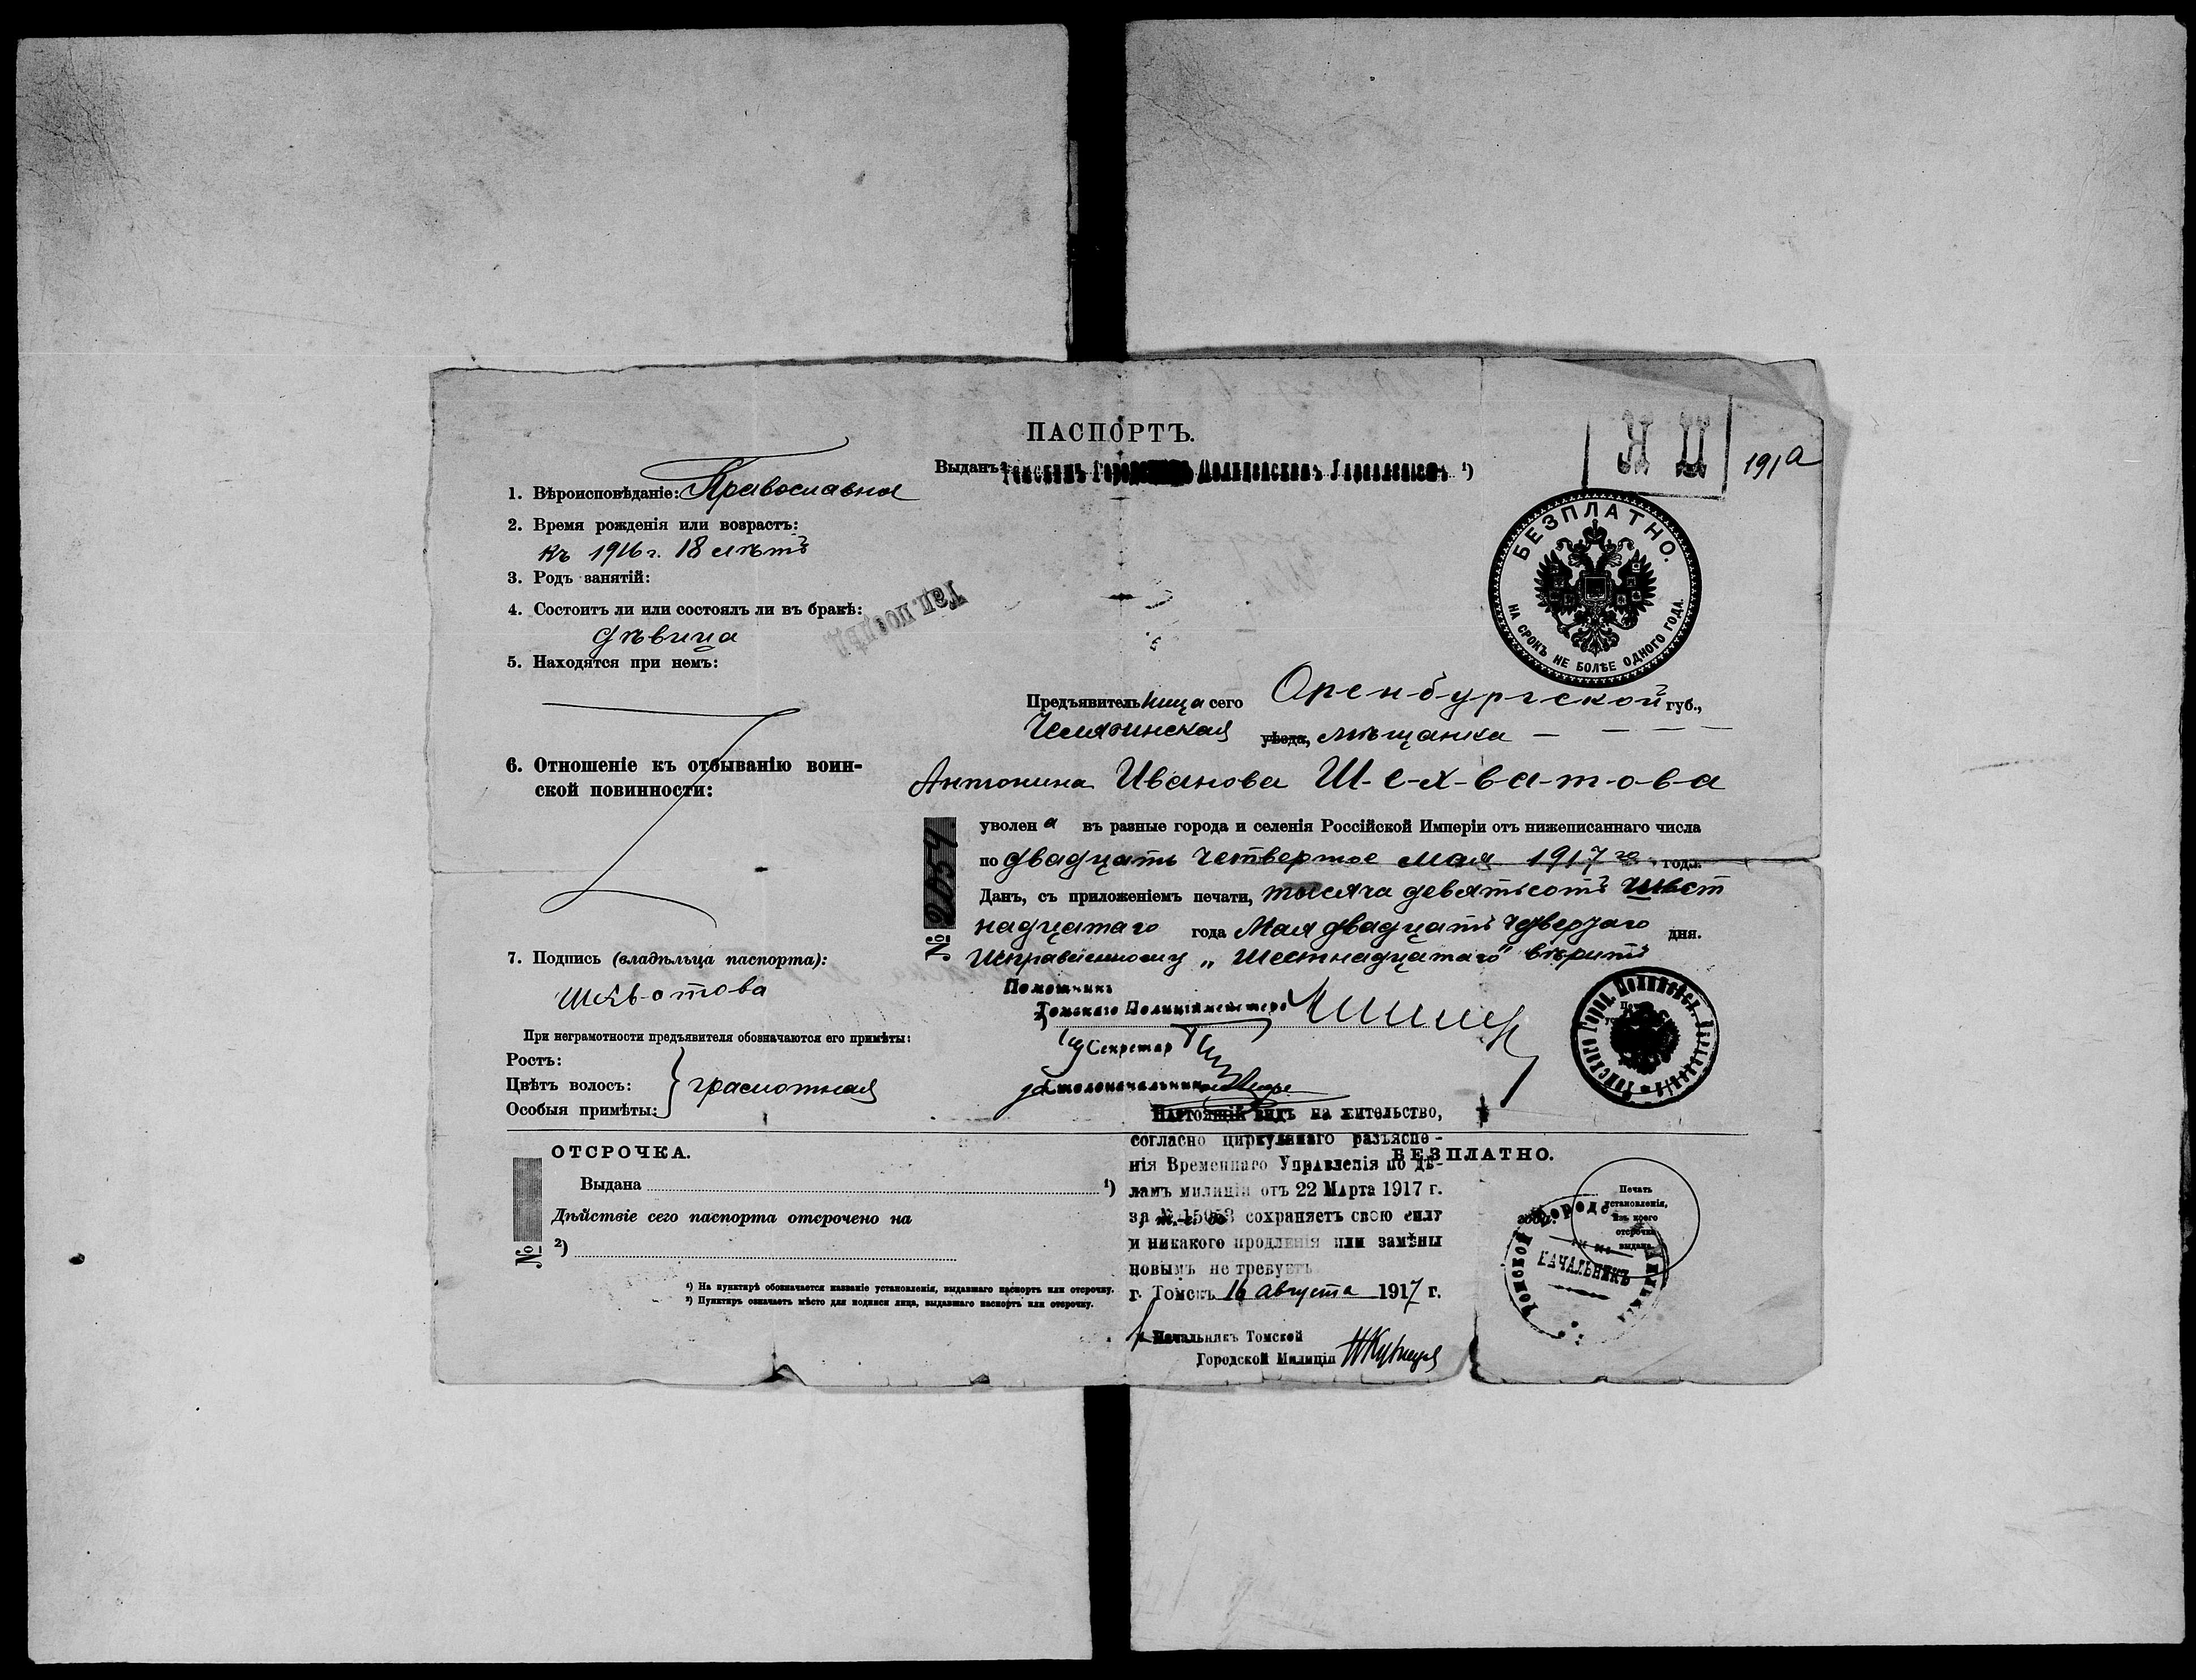 ПАСПОРТЪ.
Выданъ Томскимъ Городскимъ Полицейскимъ Управленіемъ ¹)
191а
1. Вѣроисповѣданіе: Православная
2. Время рожденія или возрастъ:
къ 1916 г. 18 лѣтъ
3. Родъ занятій:
4. Состоитъ ли или состоялъ ли въ бракѣ:
дѣвица
5. Находятся при немъ:
6. Отношеніе къ отбыванію воин-
ской повинности:
7. Подпись (владѣльца паспорта):
При неграмотности предъявителя обозначаются его примѣты:
Ростъ:
Цвѣтъ волосъ:
Особыя примѣты:
грамотная
БЕЗПЛАТНО.
НА СРОКЪ НЕ БОЛѢЕ ОДНОГО ГОДА.
Предъявительница сего Оренбургской губ.,
Челябинская уѣзда, мѣщанка
Антонина Иванова Ш-е-х-ва-т-о-в-а
уволена въ разные города и селенія Россійской Имперіи отъ нижеписаннаго числа
по двадцать четвертое мая 1917 го года.
Данъ, съ приложеніемъ печати, тысяча девятьсотъ шест
надцатаго года Мая двадцать четвертаго дня.
Исправленному „Шестнадцатаго" вѣрить
№ 2054
Помощникъ
Томскаго Полиціймейстера
Секретар
Столоначальник
Томскаго Город. Полицейск. Управленія
ОТСРОЧКА.
Выдана ¹)
Дѣйствіе сего паспорта отсрочено на
²)
№
¹) На пунктирѣ обозначается названіе установленія, выдавшаго паспортъ или отсрочку.
²) Пунктиръ означаетъ мѣсто для подписи лица, выдавшаго паспортъ или отсрочку.
БЕЗПЛАТНО.
Настоящій видъ на жительство,
согласно циркулянаго разъясне-
нія Временнаго Управленія по дѣ-
ламъ милиціи отъ 22 Марта 1917 г.
за № 15053 сохраняетъ свою силу
и никакого продленія или замѣны
новымъ не требуетъ
г. Томскъ 16 августа 1917 г.
Начальникъ Томской
Городской Милиціи
Печать
установленія,
изъ коего
отсрочка
выдана.
НАЧАЛЬНИКЪ